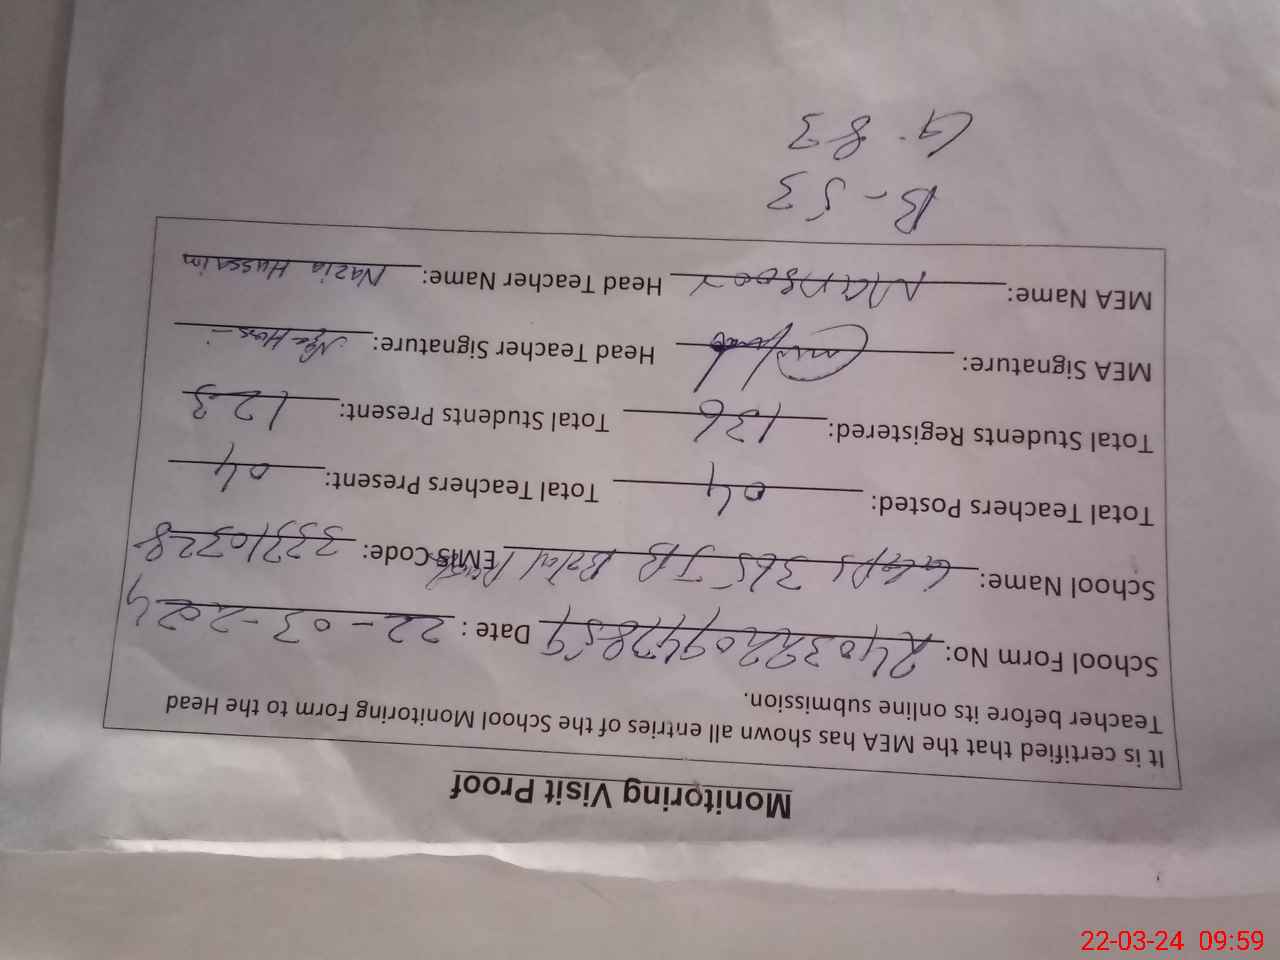 Monitoring Visit Proof
It is certified that the MEA has shown all entries of the School Monitoring Form to the Head
Teacher before its online submission.
School Form No: Date: 22-03-2024
School Name: GGPS 365 JB EMIS Code: 33310328
Total Teachers Posted: 04 Total Teachers Present: 04
Total Students Registered: 136 Total Students Present: 123
MEA Signature: Head Teacher Signature:
MEA Name: Mansoor Head Teacher Name: Nazia Hussain
B-53
G.83
22-03-24 09:59